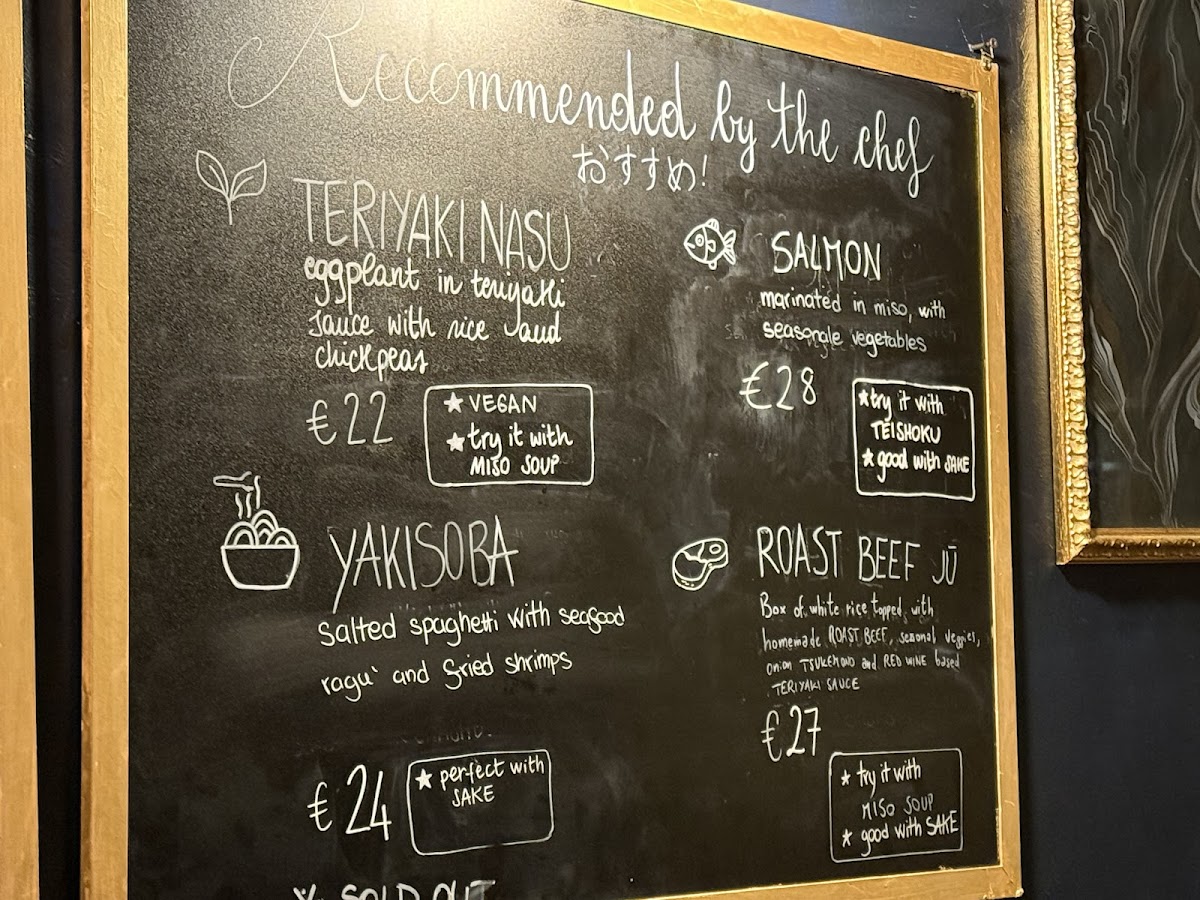 Recommended by the chef
おすすめ!
TERIYAKI NASU
eggplant in teriyaki
sauce with rice and
chickpeas
€22
★ VEGAN
★ try it with
MISO SOUP
SALMON
marinated in miso, with
seasongle vegetables
€28
★ try it with
TEISHOKU
★ good with SAKE
YAKISOBA
salted spaghetti with seafood
ragu' and fried shrimps
€24
★ perfect with
SAKE
ROAST BEEF JŪ
Box of white rice topped with
homemade ROAST BEEF, seasonal veggies,
onion TSUKEMONO and RED WINE based
TERIYAKI SAUCE
€27
★ try it with
MISO SOUP
★ good with SAKE
SOLD OUT